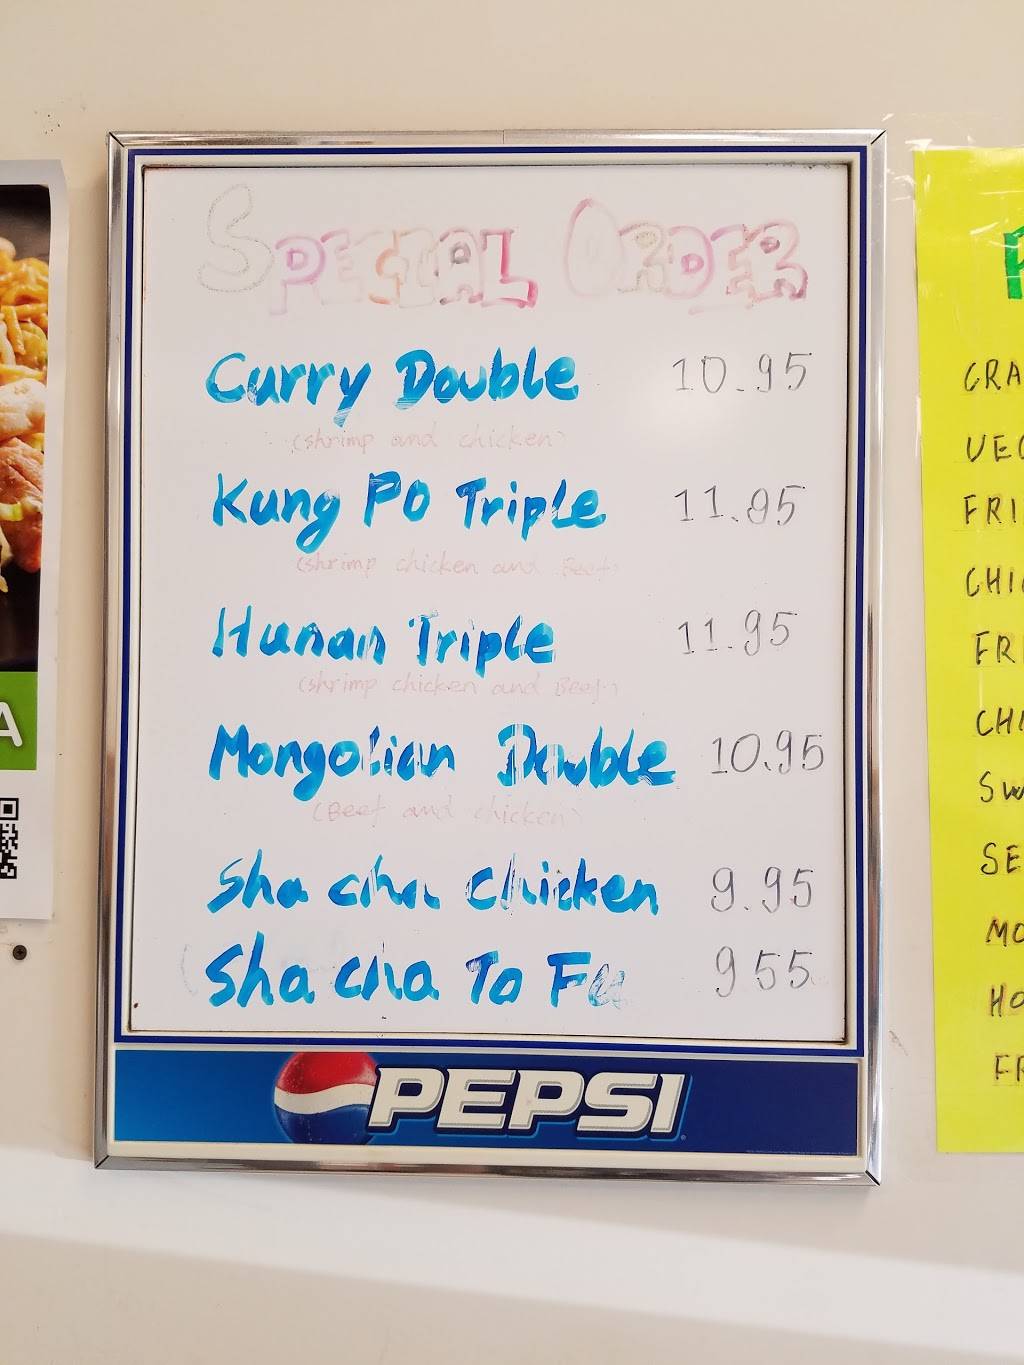 SPECIAL ORDER
Curry Double 10.95
(shrimp and chicken)
Kung Po Triple 11.95
(shrimp chicken and Beef)
Hunan Triple 11.95
(shrimp chicken and Beef)
Mongolian Double 10.95
(Beef and chicken)
Sha cha Chicken 9.95
Sha Cha To Fu 955
PEPSI
A
CRA
VEG
FRI
CHIC
FRI
CHI
SW
SE
MO
HO
FR